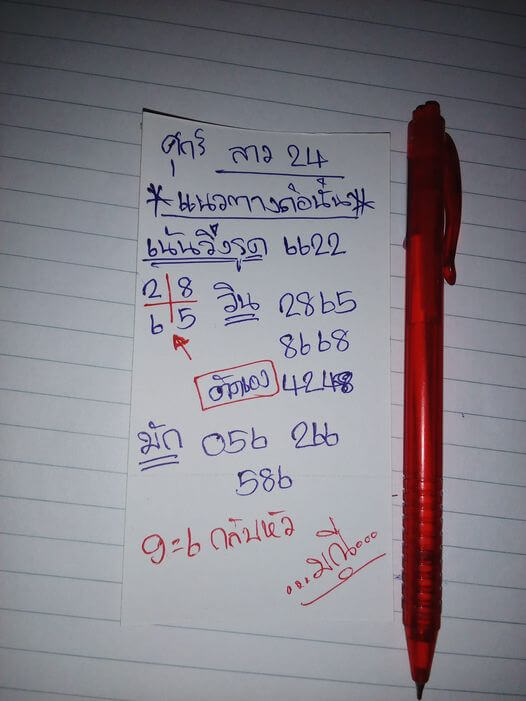 ศุกร์ ลาว 24
*แนวทางต่อนั้น*
เน้นวิ่งรูด 6622
28 วิน 2865
65 8668
ตัดเอง 4248
มัก 056 266
586
9=6 กลับหัว
...มณี...